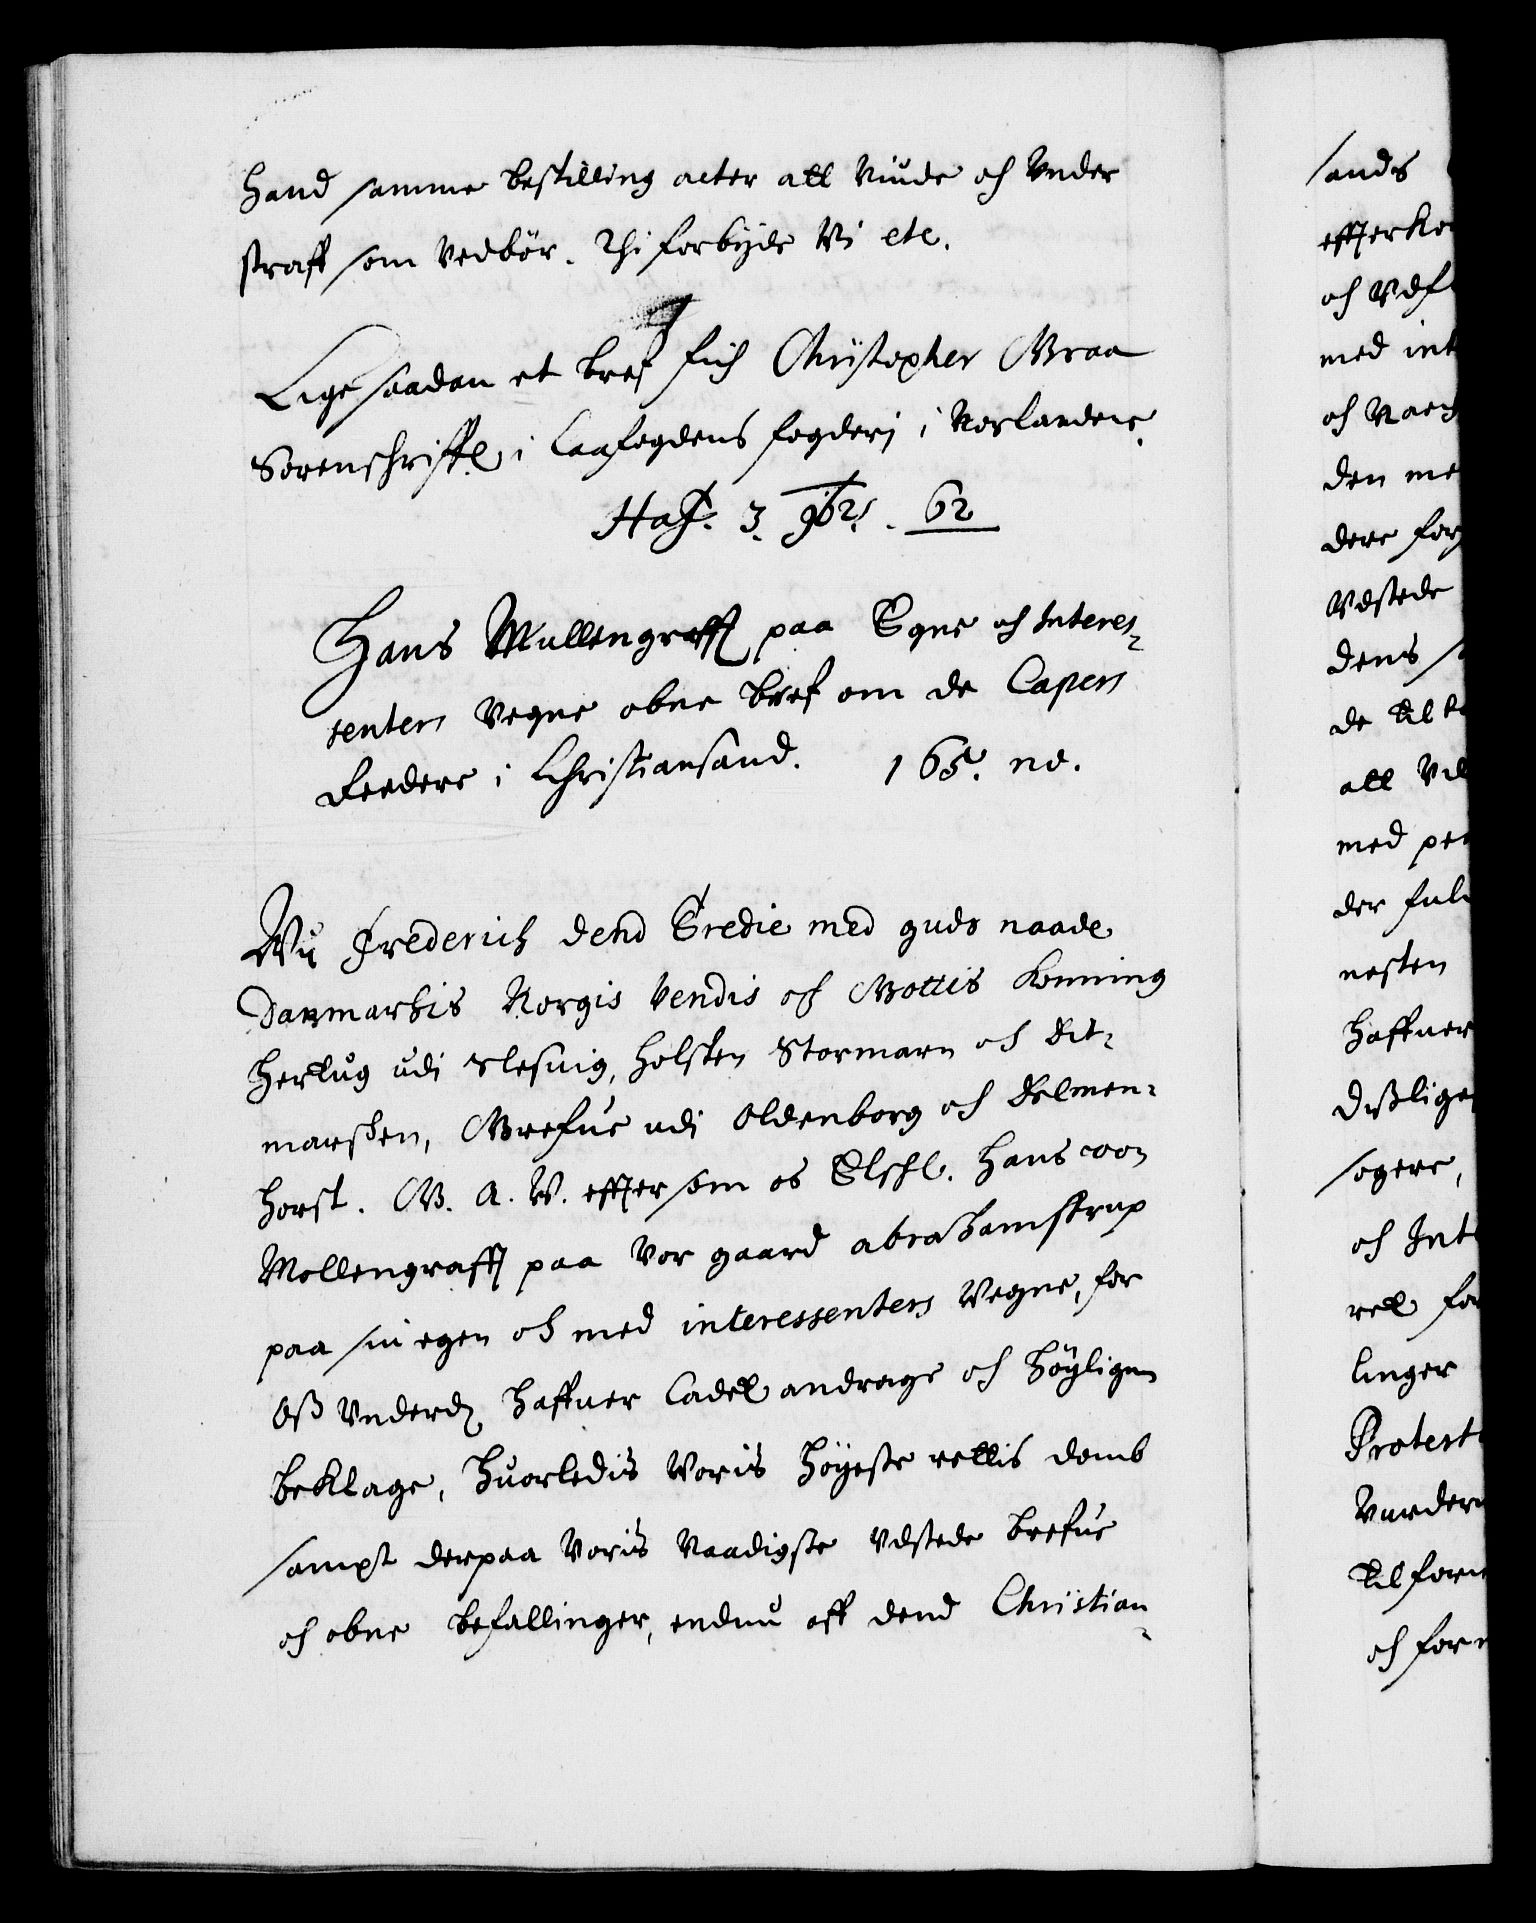 hand samme bestilling acter att Niude och Vnder
straff som Vedbör. Thi forbyde Vi etc.
Lige saadan et bref fich Christopher Graa
Sorenschriffr i Laafogdens fogderi i Norlandene
Haf. 3. 9br. 62
Hans Mullengraff paa Egne och Interes-
senters Vegne obne bref om de Capers
Reedere i Christiansand. 165. no.
Wy Frederich dend Tredie med guds naade
Danmarkis Norgis Vendis och Gottis Konning
hertug udi Slesuig, holsten Stormarn och Dit-
marsken, Grefue udi Oldenborg och Delmen-
horst. G. A. V. effter som os Elschl. hans von
Mollengraff paa Vor gaard abrahamstrup
paa sin egen och med interessenters Vegne, for
Oß Vnderd haffuer ladet andrage och höyligen
beklage, huorledis Voris höyeste rettis domb
sampt derpaa Voris Naadigste Vdstede brefue
och obne befallinger, endnu aff dend Christian-
sands
och
med
och
den
dere
Vdstede
dens
de
att
med
der
nesten
haffuer
sogere,
och
linger
och